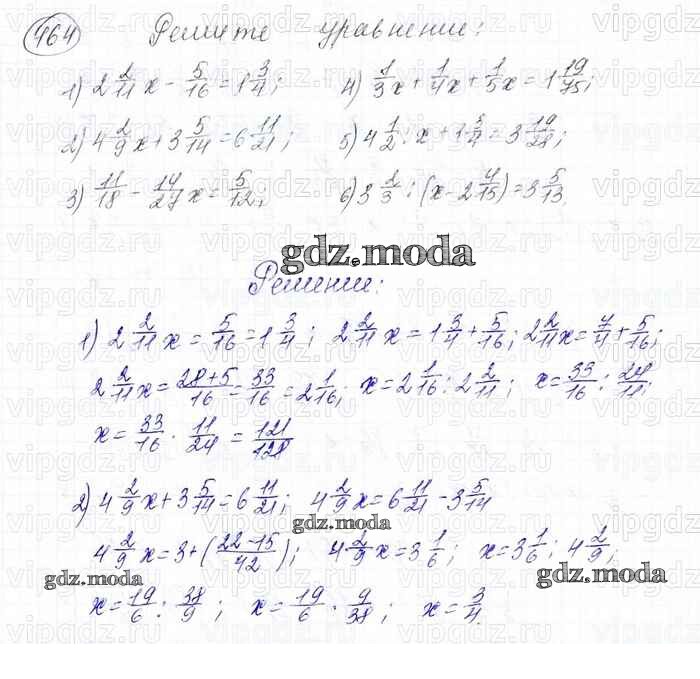 464 Решите уравнение:
1) 2 2/11 x - 5/16 = 1 3/4; 4) 1/3 x + 1/4 x + 1/5 x = 1 19/75;
2) 4 2/9 x + 3 5/14 = 6 11/21; 5) 4 1/2 : x + 1 3/4 = 3 19/28;
3) 11/18 - 14/27 x = 5/12; 6) 3 1/3 : (x - 2 4/15) = 3 5/13.
gdz.moda
Решение:
1) 2 2/11 x = 5/16 = 1 3/4; 2 2/11 x = 1 3/4 + 5/16; 2 2/11 x = 7/4 + 5/16;
2 2/11 x = (28+5)/16 = 33/16 = 2 1/16; x = 2 1/16 : 2 2/11; x = 33/16 : 24/11;
x = 33/16 · 11/24 = 121/128
2) 4 2/9 x + 3 5/14 = 6 11/21; 4 2/9 x = 6 11/21 - 3 5/14
gdz.moda
4 2/9 x = 3 + (22-15/42); 4 2/9 x = 3 1/6; x = 3 1/6 : 4 2/9;
gdz.moda gdz.moda
x = 19/6 : 38/9; x = 19/6 · 9/38; x = 3/4.